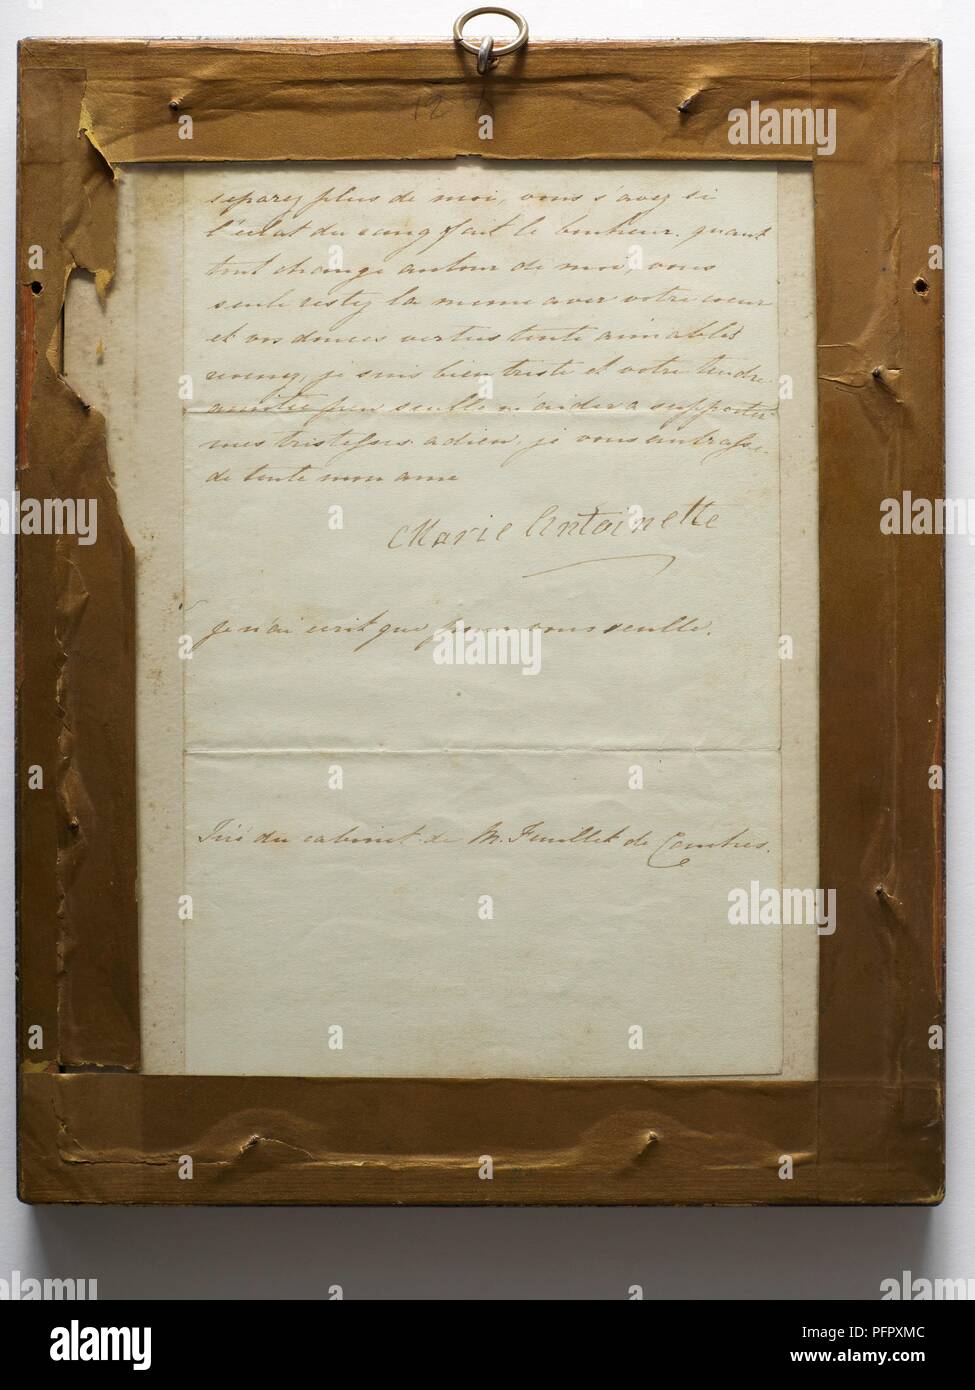 127
separez plus de moi, vous s'avez si
l'éclat du sang fait le bonheur. quant
tout change autour de moi, vous
seule restez la meme avec votre coeur
et vos douces vertus toute aimables
revenez, je suis bien triste et votre tendre
amitié peu seulle m'aider a supporter
mes tristesses. adieu, je vous embrasse.
de toute mon ame
Marie Antoinette
je n'ai ecrit que pour vous seulle.
Tiré du cabinet de M. Feuillet de Conches.
alamy
alamy stock photo
PFPXMC
www.alamy.com